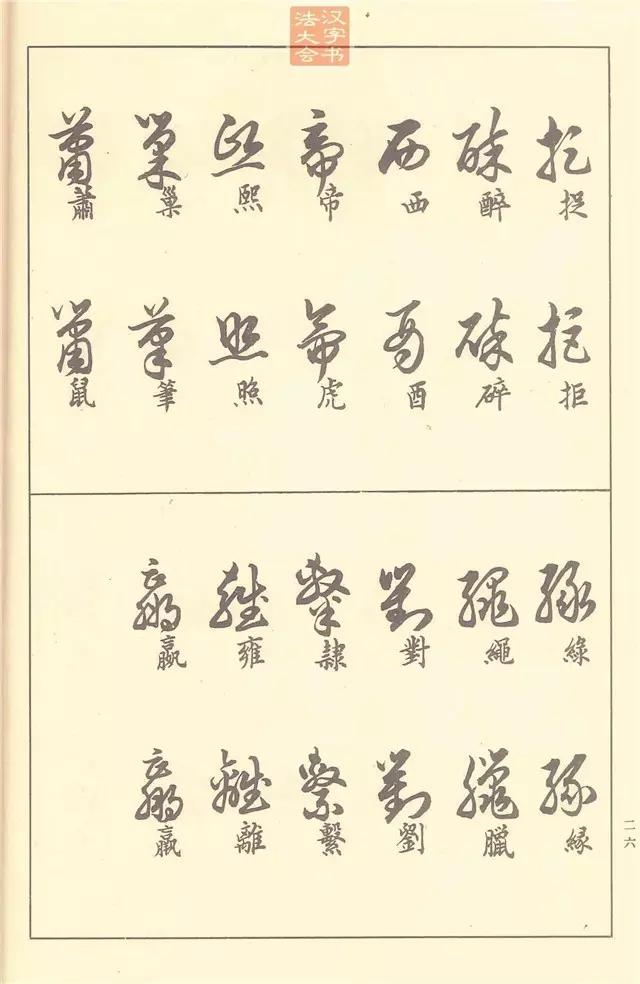 汉字书
法大会
捉 醉 西 帝 熙 巢 蕭
拒 碎 酉 虎 照 筆 鼠
綠 繩 對 隸 雍 嬴
緣 臘 劉 繫 離 羸
二六